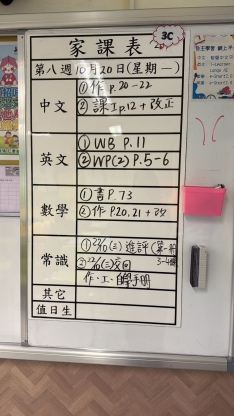 家課表
3C
第八週 10月20日(星期一)
中文
①作 p.20-22
②課I p.12 + 改正
英文
①WB P.11
②WP(2) P.5-6
數學
①書P.73
②作P.20,21 + 改
常識
①22/10(三)進評(第
3-4
②22/10(三)交回
作、工、自學手冊
其它
值日生